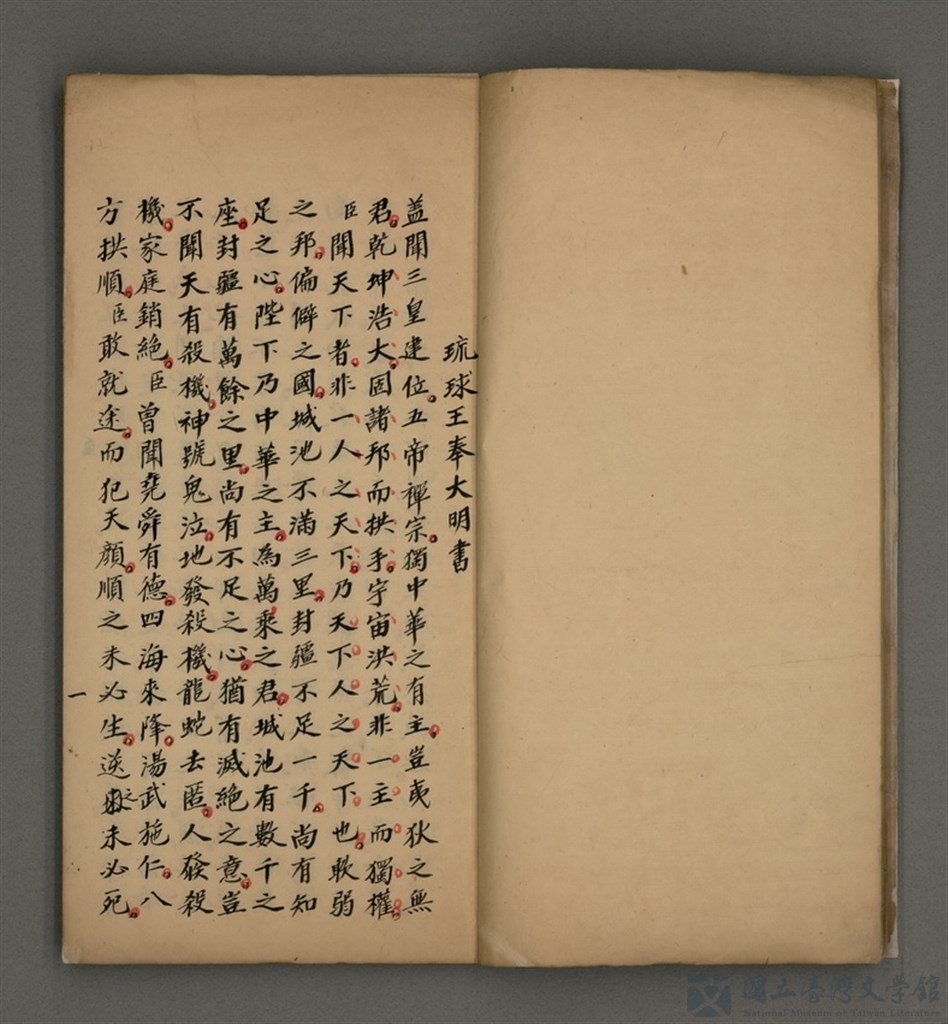 琉球王奉大明書
盖聞三皇建位五帝禪宗獨中華之有主豈夷狄之無
君乾坤浩大因諸邦而拱手宇宙洪荒非一主而獨權
臣聞天下者非一人之天下乃天下人之天下也軟弱
之邦偏僻之國城池不滿三里封疆不足一千尚有知
足之心陛下乃中華之主為萬乘之君城池有數千之
座封疆有萬餘之里尚有不足之心猶有滅絕之意豈
不聞天有殺機神號鬼泣地發殺機龍蛇去匿人發殺
機家庭銷絕臣曾聞堯舜有德四海來降湯武施仁八
方拱順臣敢就途而犯天顏順之未必生逆之未必死
一
國立臺灣文學館
National Museum of Taiwan Literature